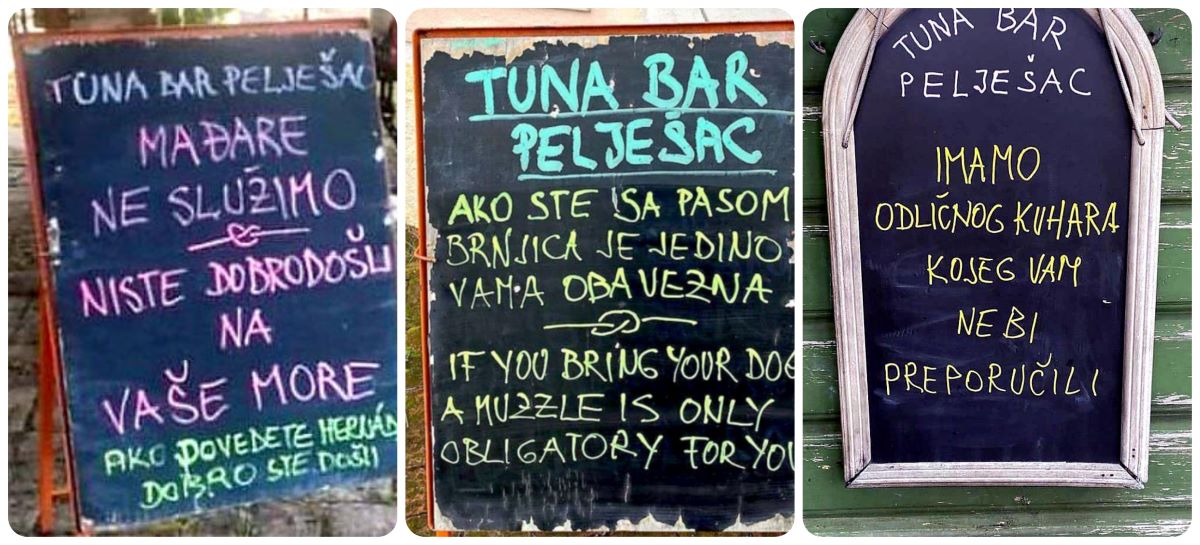 TUNA BAR PELJEŠAC
MAĐARE
NE SLUŽIMO
NISTE DOBRODOŠLI
NA
VAŠE MORE
AKO POVEDETE HERNÁD
DOBRO STE DOŠLI
TUNA BAR
PELJEŠAC
AKO STE SA PASOM
BRNJICA JE JEDINO
VAMA OBAVEZNA
IF YOU BRING YOUR DOG
A MUZZLE IS ONLY
OBLIGATORY FOR YOU
TUNA BAR
PELJEŠAC
IMAMO
ODLIČNOG KUHARA
KOJEG VAM
NE BI
PREPORUČILI